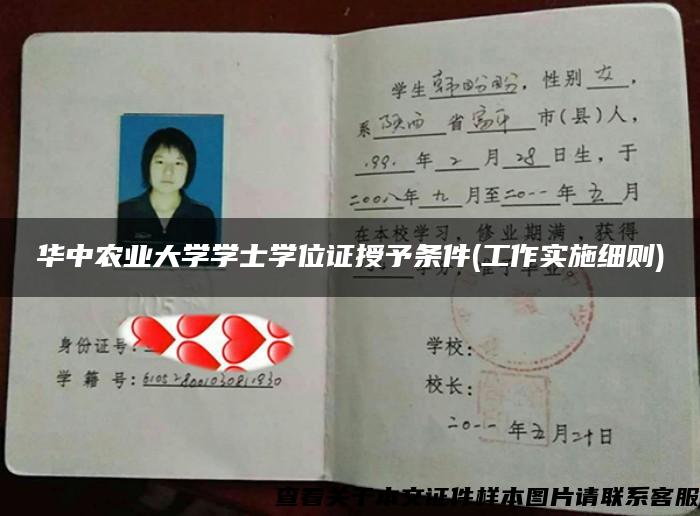 学生韩盼盼，性别女，
系陕西省富平市(县)人，
199.年2月28日生，于
二00八年九月至二0一一年五月
在本校学习，修业期满，获得
华中农业大学学士学位证授予条件(工作实施细则)
学分，准予毕业。
身份证号:
学籍号:
学校:
校长:
二0一一年五月二十日
查看关于本文证件样本图片请联系客服